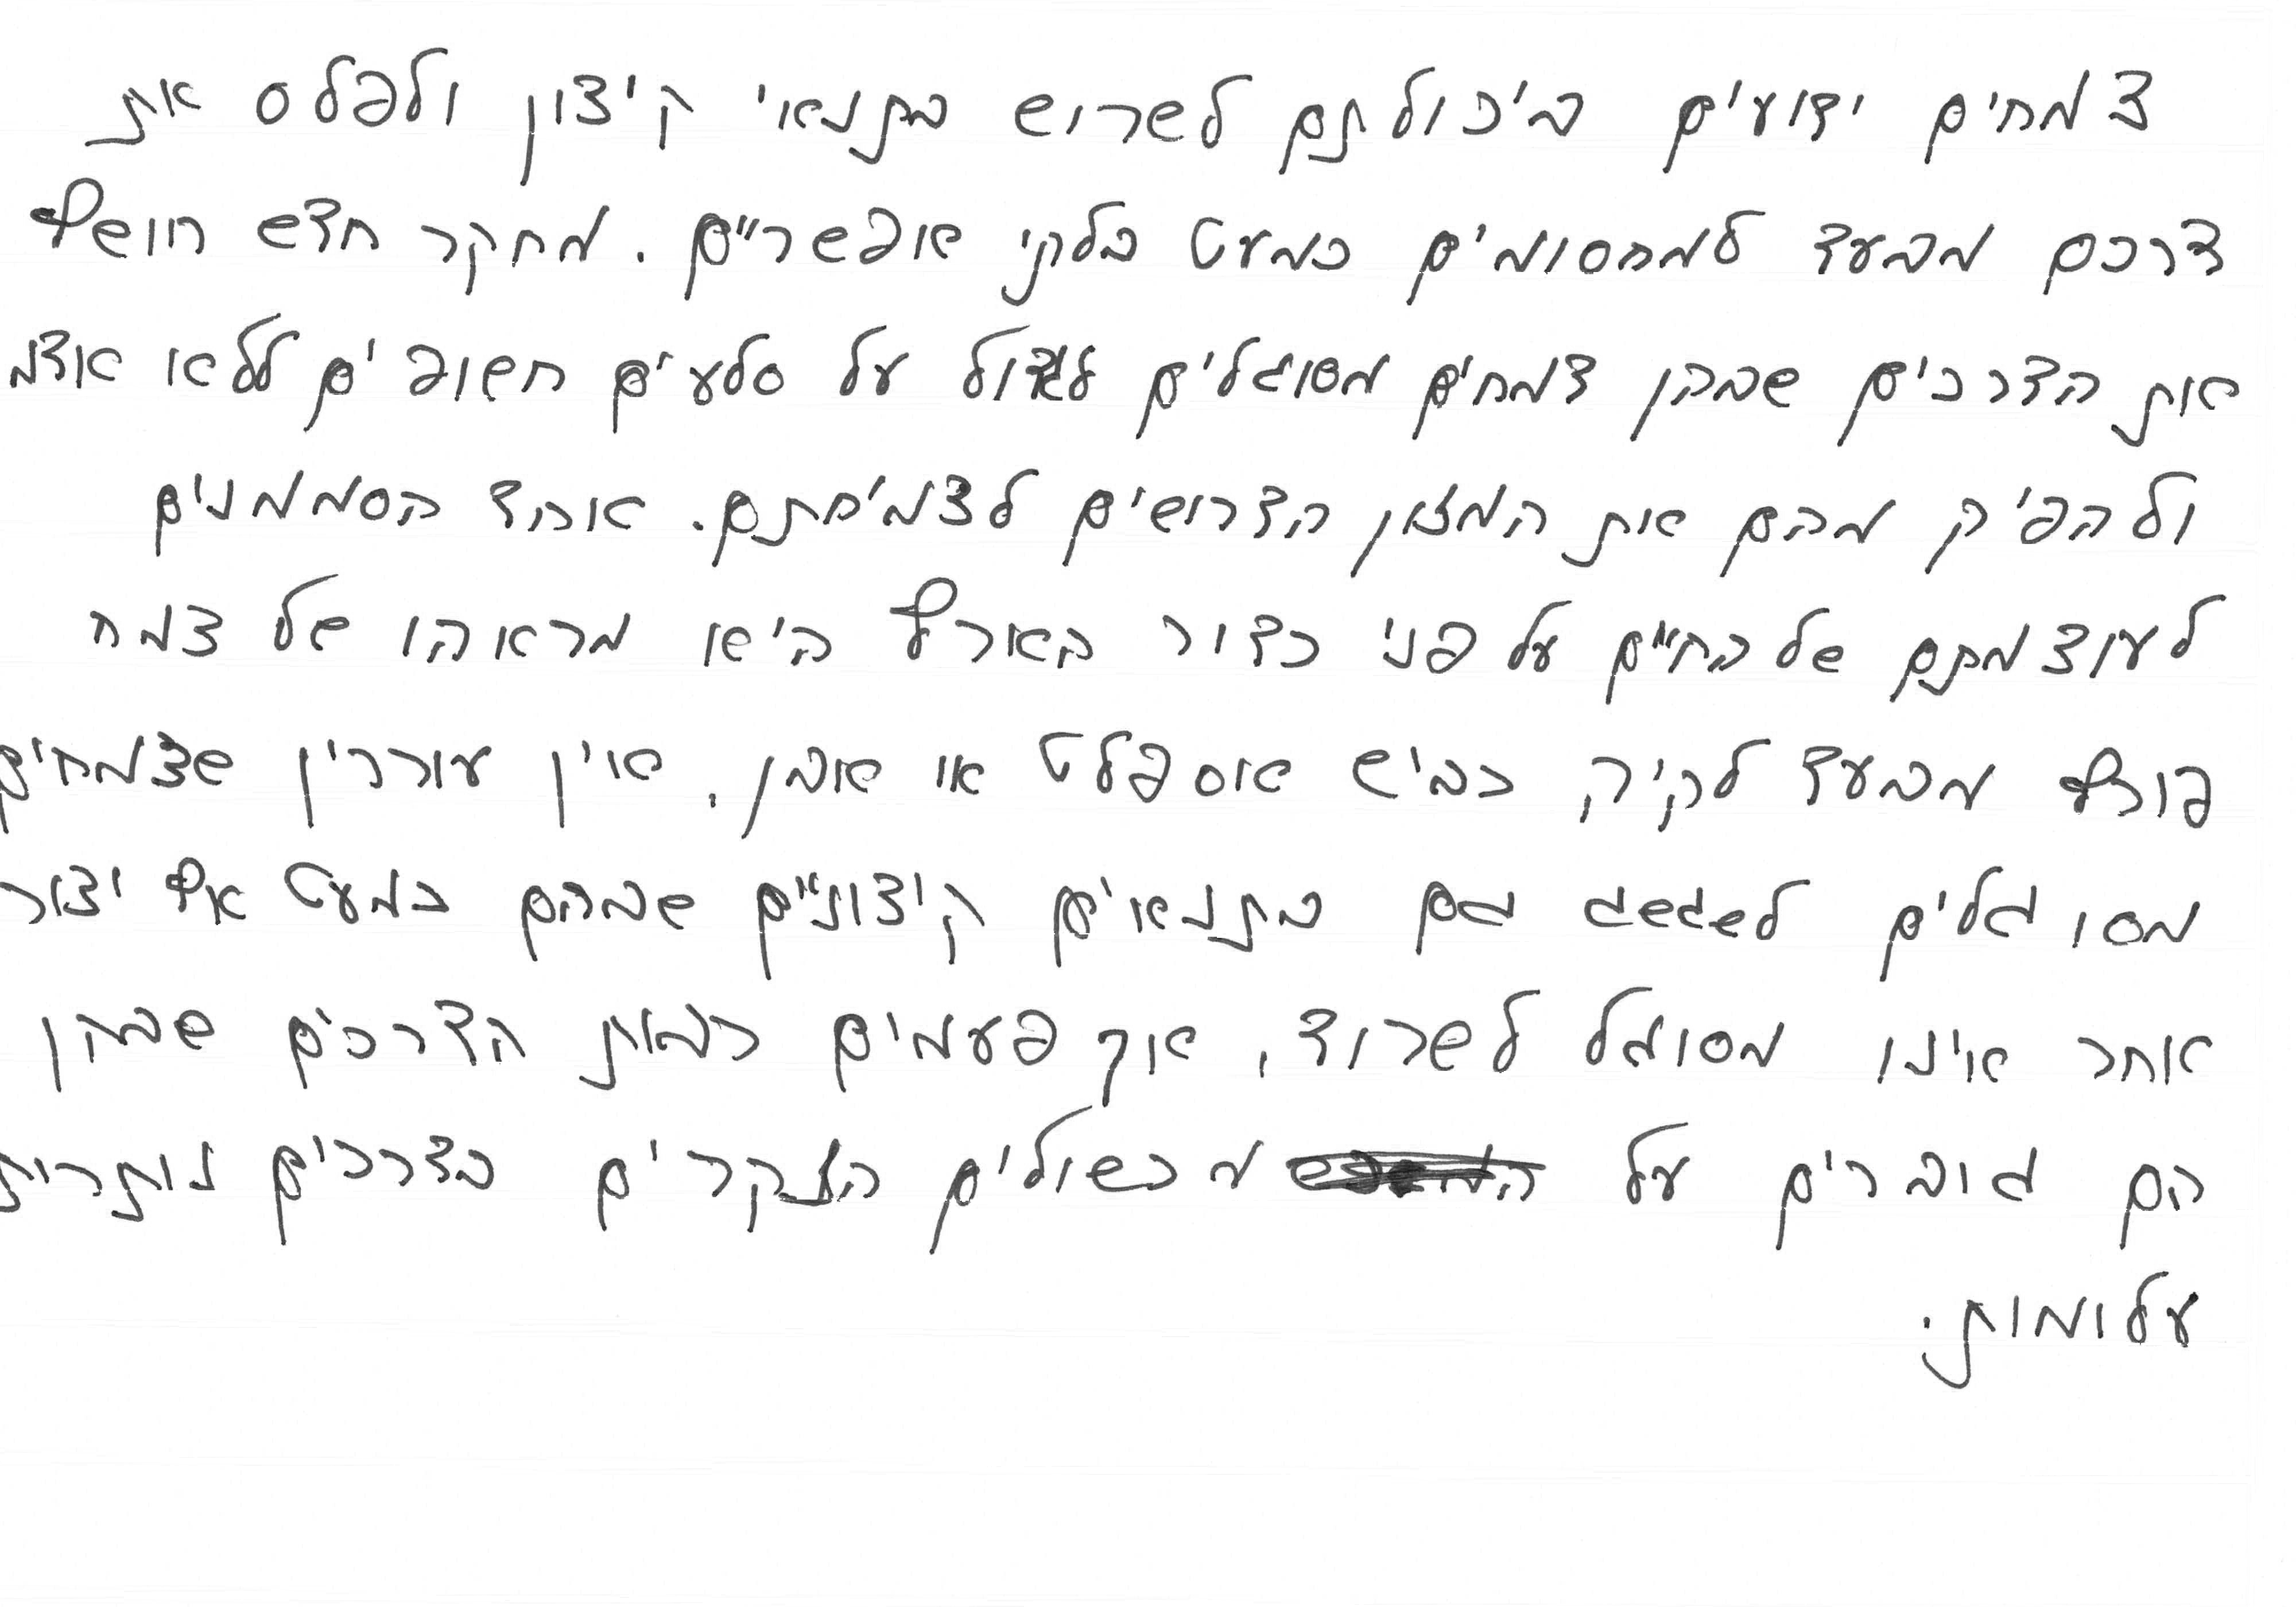 צמחים ידועים ביכולתם לשרוש בתנאי קיצון ולפלס את
דרכם מבעד למחסומים כמעט בלתי אפשריים. מחקר חדש חושף
את הדרכים שבהן צמחים מסוגלים לגדול על סלעים חשופים ללא אדמ
ולהפיק מהם את המזון הדרושים לצמיחתם. אחד הסממנים
לעוצמתם של החיים על פני כדור הארץ היא מראהו של צמח
פורץ מבעד לקיר, כביש אספלט או אבן. אין עוררין שצמחים
מסוגלים לשגשג גם בתנאים קיצוניים שבהם כמעט אף יצור
אחר אינו מסוגל לשרוד, אך פעמים רבות הדרכים שבהן
הם גוברים על מכשולים הנקרים בדרכים נותרות
עלומות.